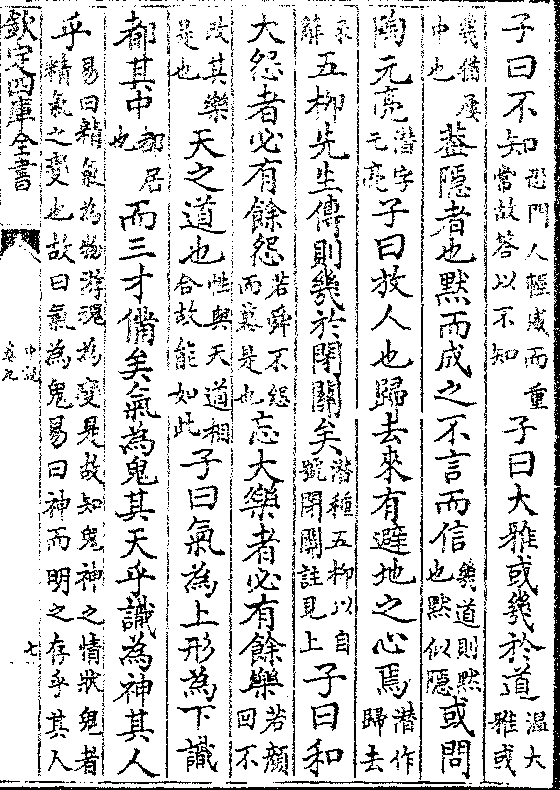 子曰不知恐門人輕咸而重常故荅以不知子曰大雅或幾於道温大雅或
幾稱屢中也葢隱者也默而成之不言而信幾道則默也默似隱或問
陶元亮潛字元亮子曰放人也歸去來有避地之心焉潛作歸去
來辭五柳先生傳則幾於閉關矣潛種五柳以自號閉關註見上子曰和
大怨者必有餘怨若舜不怨而慕是也忘大樂者必有餘樂若顔回不
改其樂是也天之道也性與天道相合故能如此子曰氣為上形為下識
都其中都居也而三才備矣氣為鬼其天乎識為神其人
乎易曰精氣為物游魂為變是故知鬼神之情狀鬼者精氣之變也故曰氣為鬼易曰神而明之存乎其人
欽定四庫全書
中說
卷九
七